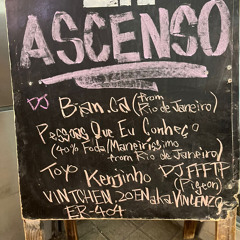 ASCENSO
DJ Bian.Ca (from
Rio de Janeiro)
Pessoas Que Eu Conheço
(40% Foda/Maneiríssimo
from Rio de Janeiro)
Toyo Kenjinho DJ FFFTP
(Pigeon)
VINTCHEN.ZOEN aka VINCENZO
ER-404